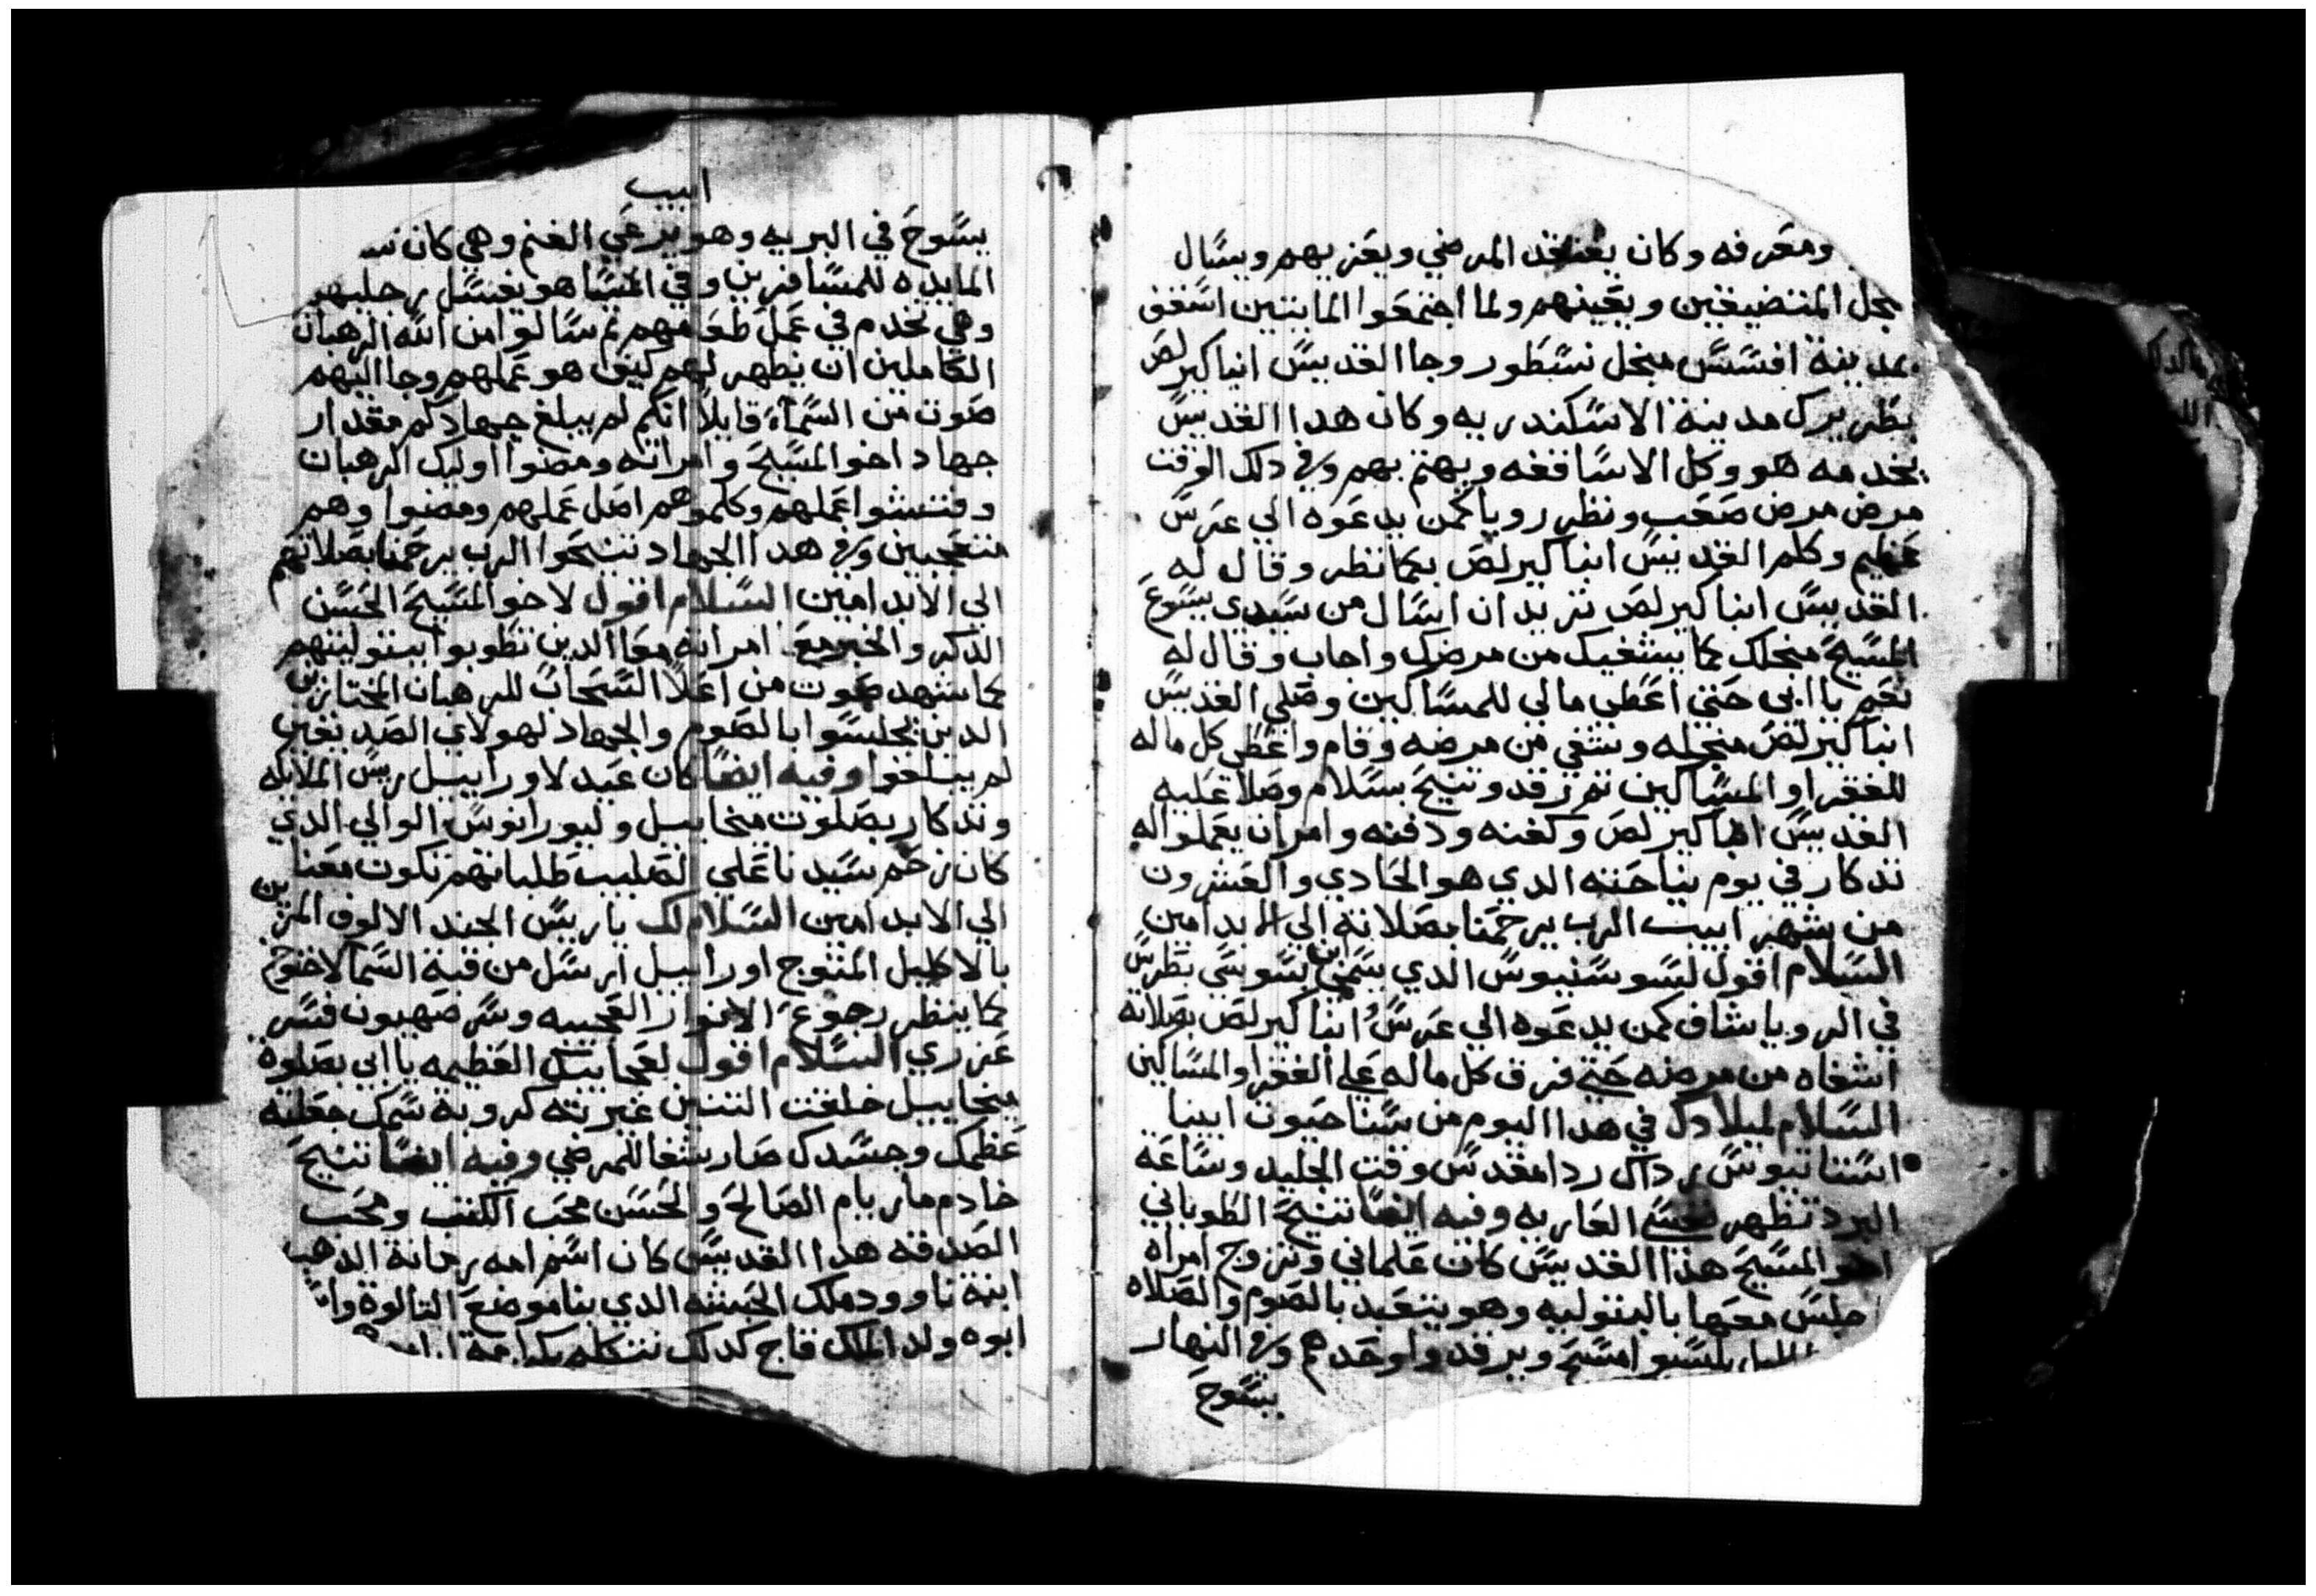 ومعرفه وكان يفتقد المرضي ويعزيهم ويسال
بجل المتضيقين ويعينهم ولما اجتمعوا المايتين اسقف
بمدينة افسس منجل نسطور وجا القديس انبا كيرلص
بطريرك مدينة الاسكندريه وكان هدا القديس
يخدمه هو وكل الاساقفه ويهتم بهم وفي دلك الوقت
مرض مرض صعب ونظر رويا كمن يدعوه الي عرس
عظيم وكلم القديس انبا كيرلص بكما نظر وقال له
القديس انبا كيرلص تريد ان اسال من سيدي يسوع
المسيح منجلك كما يشفيك من مرضك واجاب وقال له
نعم يا ابي حتي اعطي مالي للمساكين وصلي القديس
انبا كيرلص منجله وشفي من مرضه وقام واعطي كل ماله
للفقرا والمساكين تم رقد وتنيح بسلام وصلا عليه
القديس انبا كيرلص وكفنه ودفنه وامر ان يعملوا له
تدكار في يوم نياحته الدي هو الحادي والعشرون
من شهر ابيب الرب يرحمنا بصلاته الي الابد امين
السلام اقول لسوسنيوس الدي يسمي ابن سوسي بطرس
في الرويا شاف كمن يدعوه الي عرس انبا كيرلص بصلاته
اشفاه من مرضه حتي فرق كل ماله علي الفقرا والمساكين
السلام لميلادك في هدا اليوم من سنا حيوت ابينا
استناتيوس رداك ردا مقدس وقت الجليد وساعة
البرد تظهر العاريه وفيه ايضا تنيح الطوباني
اخو المسيح هذا القديس كان علماني وتزوج امراه
جلس معها بالبتوليه وهو يتعبد بالصوم والصلاه
يلبسوا امسح ويرقدوا وحدهم وفي النهار
يسوح
ابيب
يسوح في البريه وهو يرعي الغنم وهي كان
المايده للمسافرين وفي المسا هو يغسل رجليهم
وهي تخدم في عمل طعامهم تم سالوا من الله الرهبان
الكاملين ان يظهر لهم كيف هو عملهم وجا اليهم
صوت من السماء قايلا انكم لم يبلغ جهادكم مقدار
جهاد اخو المسيح وامراته ومضوا اوليك الرهبان
وفتشوا عملهم وكلموهم اصل عملهم ومضوا وهم
متعجبين وفي هدا الجهاد تنيحوا الرب يرحمنا بصلاتهم
الي الابد امين السلام اقول لاخو المسيح الحسن
الدكر والخبر مع امراته معا الدين تطوبوا ببتوليتهم
كما شهد صوت من اعلا السحاب للرهبان المختارين
الدين يجلسوا بالصوم والجهاد لهولاي الصديقين
لم يبلغوا وفيه ايضا كان عيد لاوراييل ريس الملايكه
وتدكار بصلوت ميخاييل وليورانوس الوالي الدي
كان رحم سيدنا علي الصليب طلباتهم تكون معنا
الي الابد امين السلام لك يا ريس الجند الالوف المزين
بالاكليل المتوج اوراييل ارسل من قبة السما لاخنوخ
كما ينظر رجوع الانوار العجيبه وسر صهيون فسر
عزري السلام اقول لعجايبك العظيمه يا ابي بصلوة
ميخاييل خلقت التنين غيرته كروبة سمك معلنه
عظمك وجسدك صار شفا للمرضي وفيه ايضا تنيح
خادم ماريام الصالح والحسن محب الكتب ومحب
الصدقه هدا القديس كان اسم امه رحانة الدهب
ابنة ناوود ملك الحبشه الدي بنا موضع التالوة
ابوه ولد الملك فاج كدلك نتكلم بكرامة